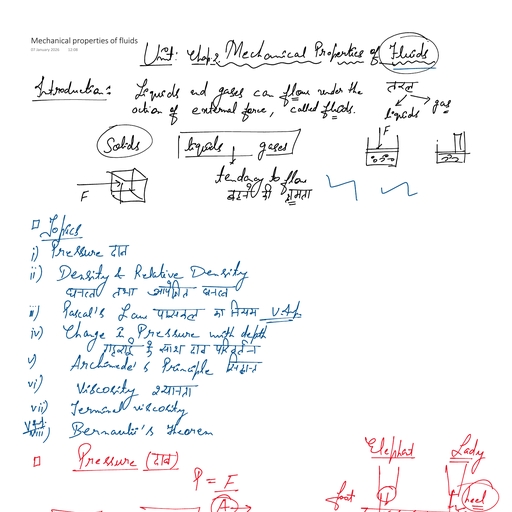 Mechanical properties of fluids
07 January 2026 11:08
Unit: Chap 2 Mechanical Properties of Fluids
Introduction: Liquids and gases can flow under the तरल
action of external force, called fluids. liquids gas
Solids liquids gases F
F tendency to flow
बहने की क्षमता
Topics
i) Pressure दाब
ii) Density & Relative Density
घनत्व तथा आपेक्षित घनत्व
iii) Pascal's Law पास्कल का नियम V.Imp
iv) Change in Pressure with depth
गहराई के साथ दाब परिवर्तन
v) Archimede's Principle सिद्धांत
vi) Viscosity श्यानता
vii) Terminal viscosity
viii) Bernaulii's Theorem
Elephat Lady
Pressure (दाब)
P = F
A foot heel